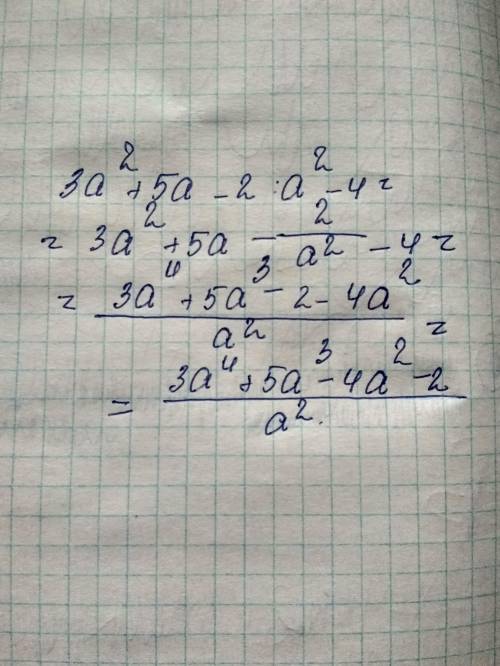 3a² + 5a - 2 : a² - 4 =
= 3a² + 5a - 2/a² - 4 =
= (3a⁴ + 5a³ - 2 - 4a²)/a² =
= (3a⁴ + 5a³ - 4a² - 2)/a².